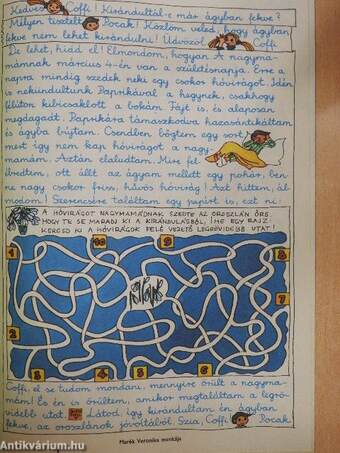 Kedves Coffi! Kirándultál-e már ágyban fekve?
Milyen tisztelt Pocak! Közlöm veled, hogy ágyban
fekve nem lehet kirándulni! Üdvözöl Coffi
De lehet, hidd el! Elmondom, hogyan. A nagyma-
mámnak március 4-én van a születésnapja. Erre a
napra mindig szedek neki egy csokor hóvirágot. Idén
is nekiindultunk Paprikával a hegynek, csakhogy
félúton kibicsaklott a bokám. Fájt is, és alaposan
megdagadt. Paprikára támaszkodva hazasántikáltam
és ágyba bújtam. Csendben bőgtem egy sort,
mert így nem kap hóvirágot a nagy-
mamám. Aztán elaludtam. Mire fel-
ébredtem, ott állt az ágyam mellett egy pohár, ben-
ne nagy csokor friss, hűvös hóvirág! Azt hittem, ál-
modom! Szerencsére találtam egy papírt is, ezt ni:
A HÓVIRÁGOT NAGYMAMÁDNAK SZEDTE AZ OROSZLÁN ŐRS.
HOGY TE SE MARADJ KI A KIRÁNDULÁSBÓL, ÍME EGY RAJZ:
KERESD KI A HÓVIRÁGOK FELÉ VEZETŐ LEGRÖVIDEBB UTAT!
11
10
9
8
7
1
2
3
4
5
6
Coffi, el se tudom mondani, mennyire örült a nagyma-
mám! És én is örültem, amikor megtaláltam a legrö-
videbb utat. Látod, így kirándultam én ágyban
fekve, az oroszlánok jóvoltából. Szia, Coffi! Pocak
Marék Veronika munkája
Antikvárium.hu